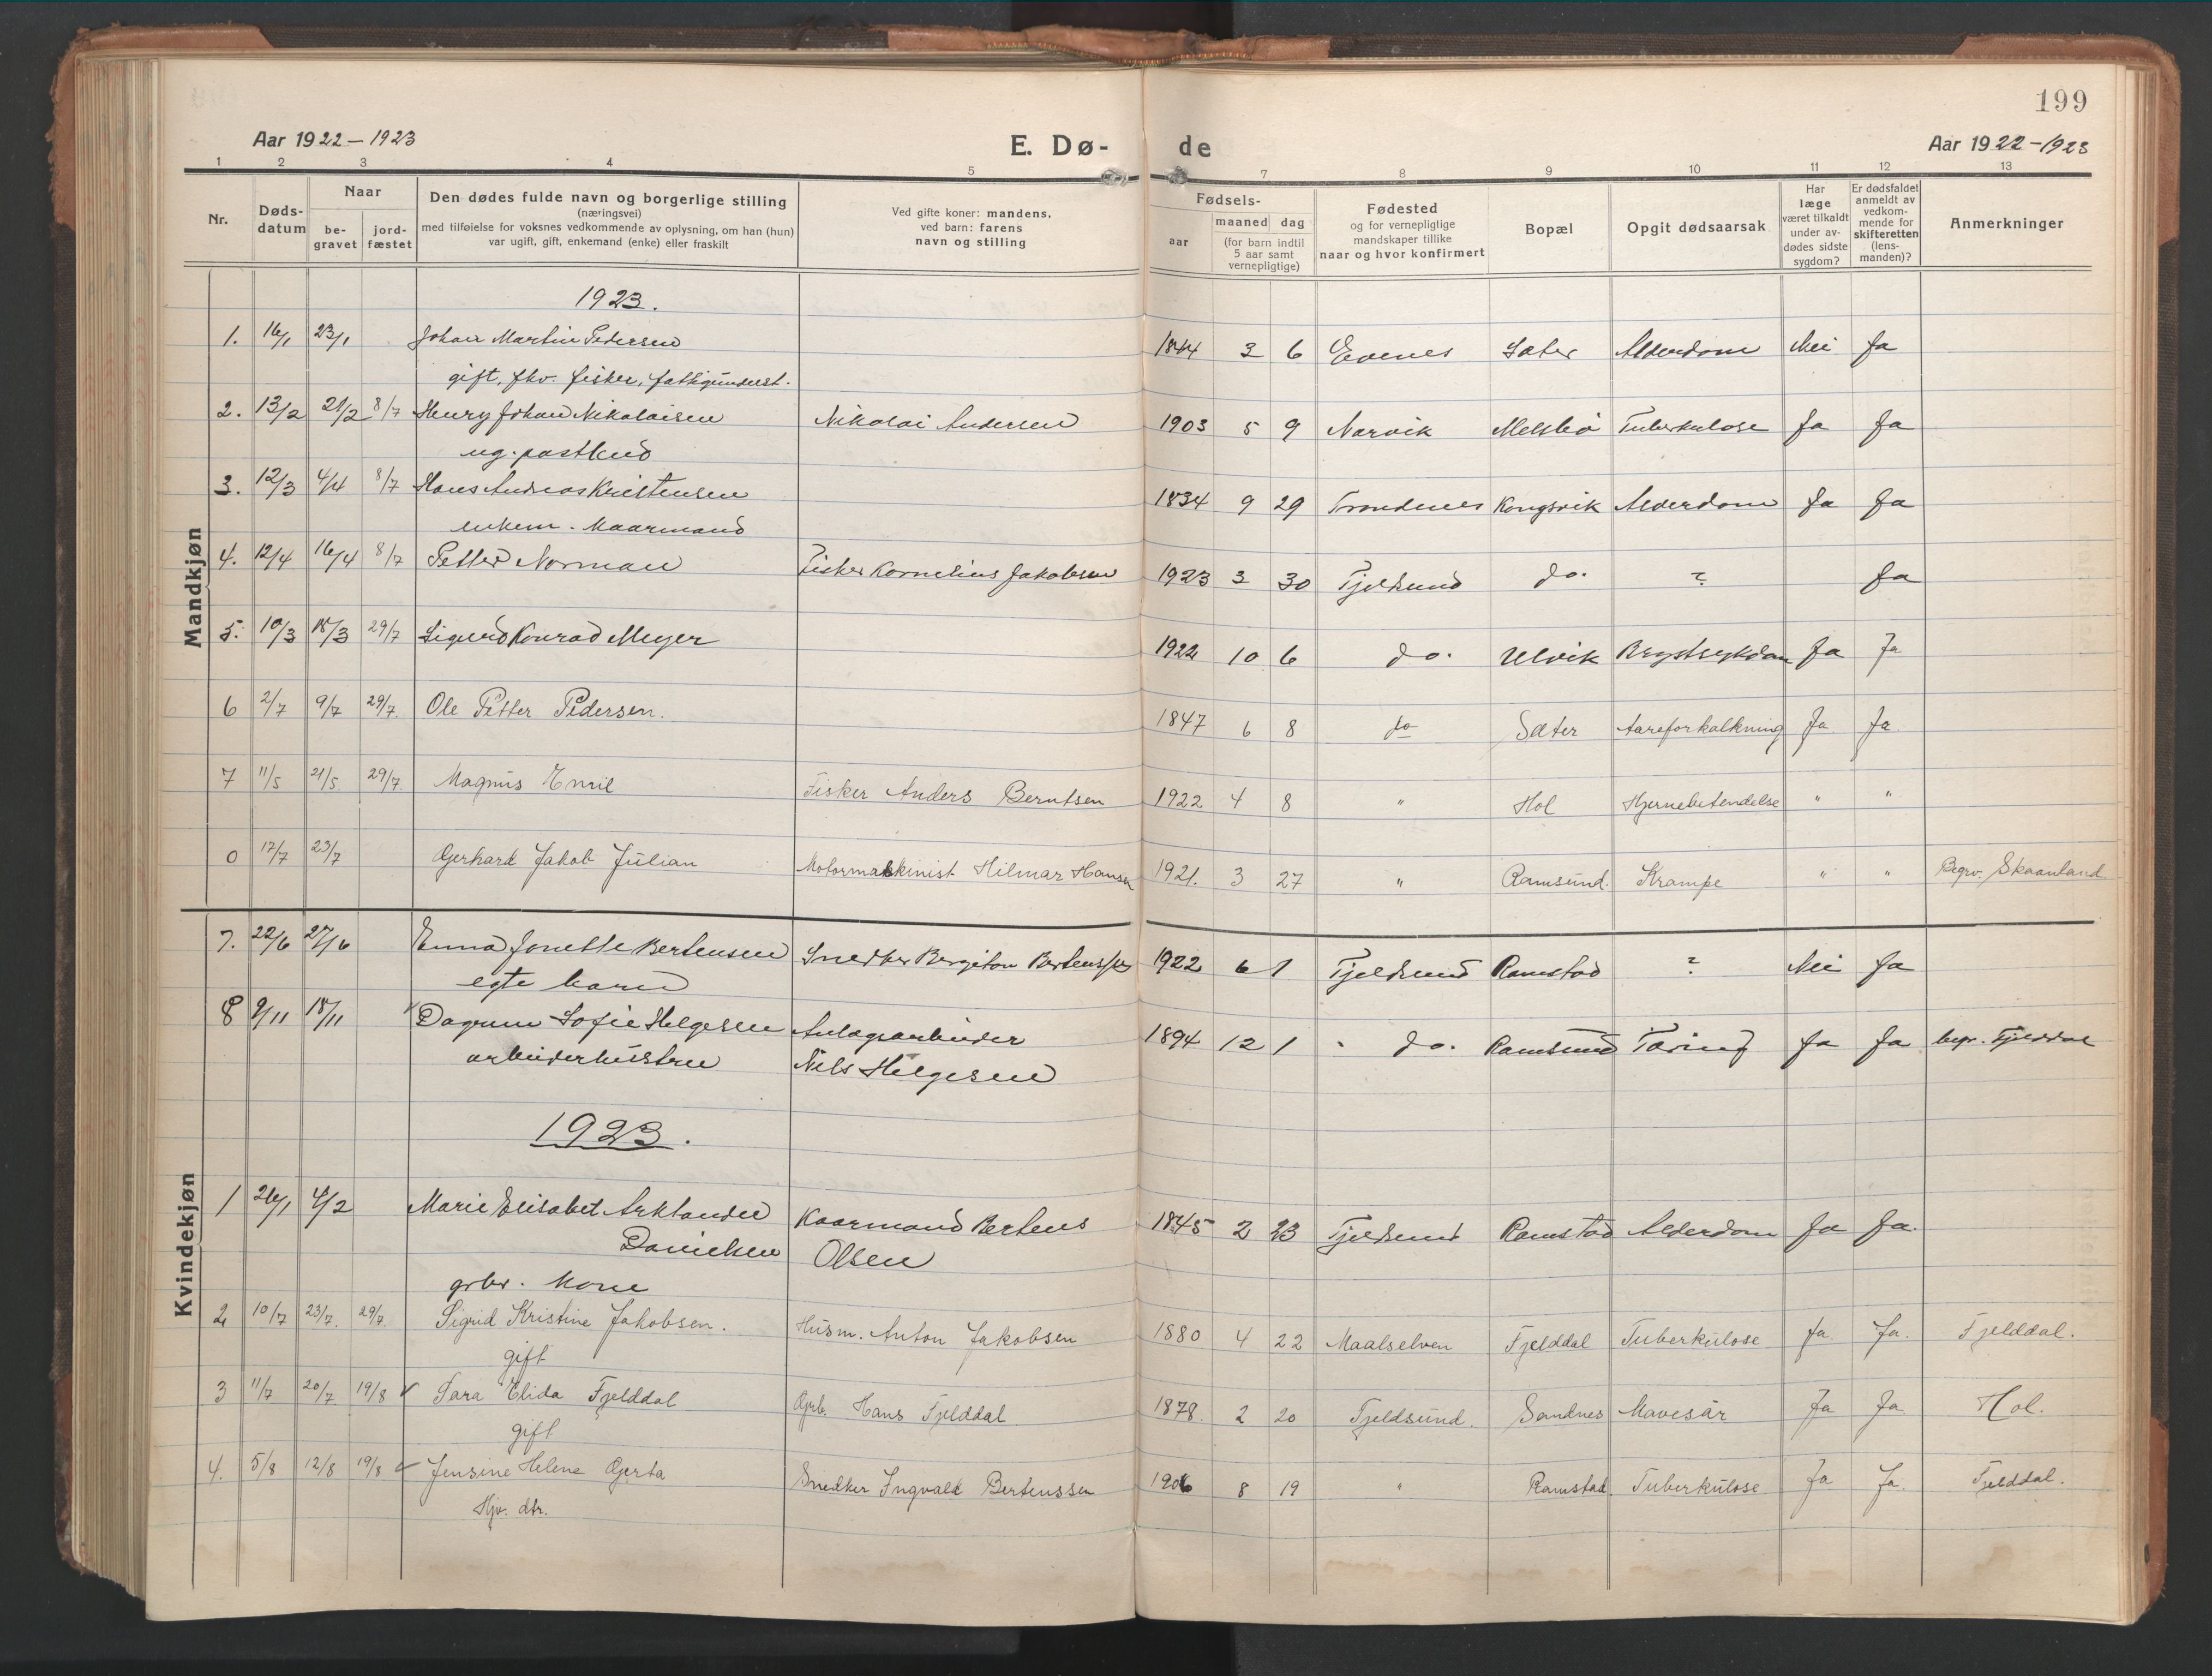 199
Aar 1922–1923 E. Dø- de Aar 1922–1923
1 2 3 4 5 7 8 9 10 11 12 13
Nr. Døds-datum Naar be-gravet jord-fæstet Den dødes fulde navn og borgerlige stilling (næringsvei) med tilføielse for voksnes vedkommende av oplysning, om han (hun) var ugift, gift, enkemand (enke) eller fraskilt Ved gifte koner: mandens, ved barn: farens navn og stilling Fødsels- aar maaned dag (for barn indtil 5 aar samt vernepligtige) Fødested og for vernepligtige mandskaper tillike naar og hvor konfirmert Bopæl Opgit dødsaarsak Har læge været tilkaldt under av-dødes sidste sygdom? Er dødsfaldet anmeldt av vedkom-mende for skifteretten (lens-manden)? Anmerkninger
Mandkjøn
1923.
1. 16/1 23/1 Johan Martin Pedersen 1844 3 6 Evenes Sæter Alderdom Nei Ja
gift, fhv. fisker, fattigunderst.
2. 13/2 21/2 8/7 Henry Johan Nikolaisen Nikolai Andersen 1903 5 9 Narvik Melsbø Tuberkulose Ja Ja
ug. postbud
3. 12/3 4/4 8/7 Hans Andreas Kristensen 1834 9 29 Trondenes Kongsvik Alderdom Ja Ja
enkem. kaarmand
4. 12/4 16/4 8/7 Petter Norman Fisker Kornelius Jakobsen 1923 3 30 Fjeldsund do. ? Ja
5. 10/3 18/3 29/7 Sigurd Konrad Meyer 1922 10 6 do. Ulvik Brystsykdom Ja Ja
6 2/7 9/7 29/7. Ole Petter Pedersen. 1847 6 8 do Sæter Aareforkalkning Ja Ja
7 11/5 21/5. 29/7. Magnus Emil Fisker Anders Berntsen 1922 4 8 " Hol Hjernebetendelse " "
0 17/7 23/7 Gerhard Jakob Julian Motormaskinist Hilmar Hansen 1921. 3 27 " Ramsund. Krampe " " Begrv. Skaanland.
Kvindekjøn
7. 22/6 27/6 Emma Jonette Bertensen Snedker Bergiton Bertenssen 1922 6 1 Tjeldsund Ramstad ? Nei Ja
egte barn
8 9/11 18/11 Dagrun Sofie Helgesen Anlægsarbeider 1894 12 1 do. Ramsund Tæring Ja Ja begr. Fjelddal
arbeiderhustru Nils Helgesen
1923.
1 26/1 4/2 Marie Elisabet Arktander Kaarmand Bertens 1845 2 23 Tjeldsund Ramstad Alderdom Ja Ja.
Danielsen Olsen
grbr. kone
2 10/7 23/7. 29/7. Sigrid Kristine Jakobsen. Husm. Anton Jakobsen 1880 4 22 Maalselven Fjelddal Tuberkulose Ja Ja. Fjelddal.
gift
3 11/7 20/7. 19/8 Sara Elida Fjelddal Gjrb. Hans Fjelddal 1878. 2 20 Tjeldsund. Sandnes Mavesår Ja Ja Hol.
gift
4. 5/8 12/8 19/8 Jensine Helene Gjerta Snedker Ingvald Bertenssen 1906 8 19 " Ramstad Tuberkulose Ja Ja. Fjelddal.
Hjv. dtr.